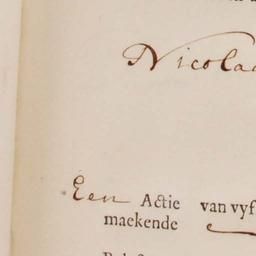 Nicola
Een Actie van vyf
maekende